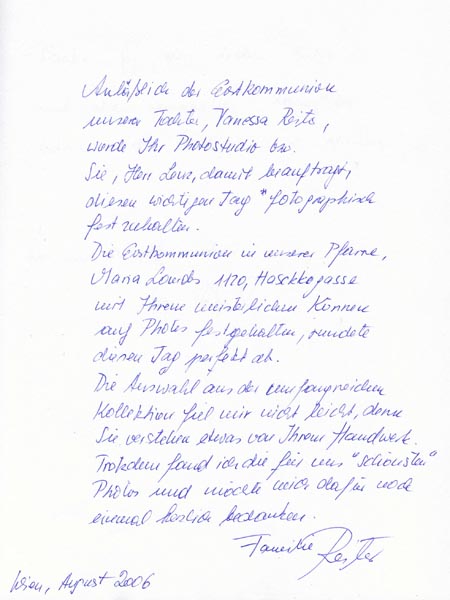 Anläßlich der Erstkommunion
unserer Tochter, Vanessa Reiter,
wurde Ihr Photostudio bzw.
Sie, Herr Lenz, damit beauftragt,
diesen wichtigen Tag "fotographisch
festzuhalten.
Die Erstkommunion in unserer Pfarre,
Maria Lourdes 1120, Haschkagasse
mit Ihrem meisterlichen Können
auf Photos festgehalten, rundete
diesen Tag perfekt ab.
Die Auswahl aus der umfangreichen
Kollektion fiel mir nicht leicht, denn
Sie verstehen etwas von Ihrem Handwerk.
Trotzdem fand ich die für uns "schönsten"
Photos und möchte mich dafür noch
einmal herzlich bedanken.
Familie Reiter
Wien, August 2006